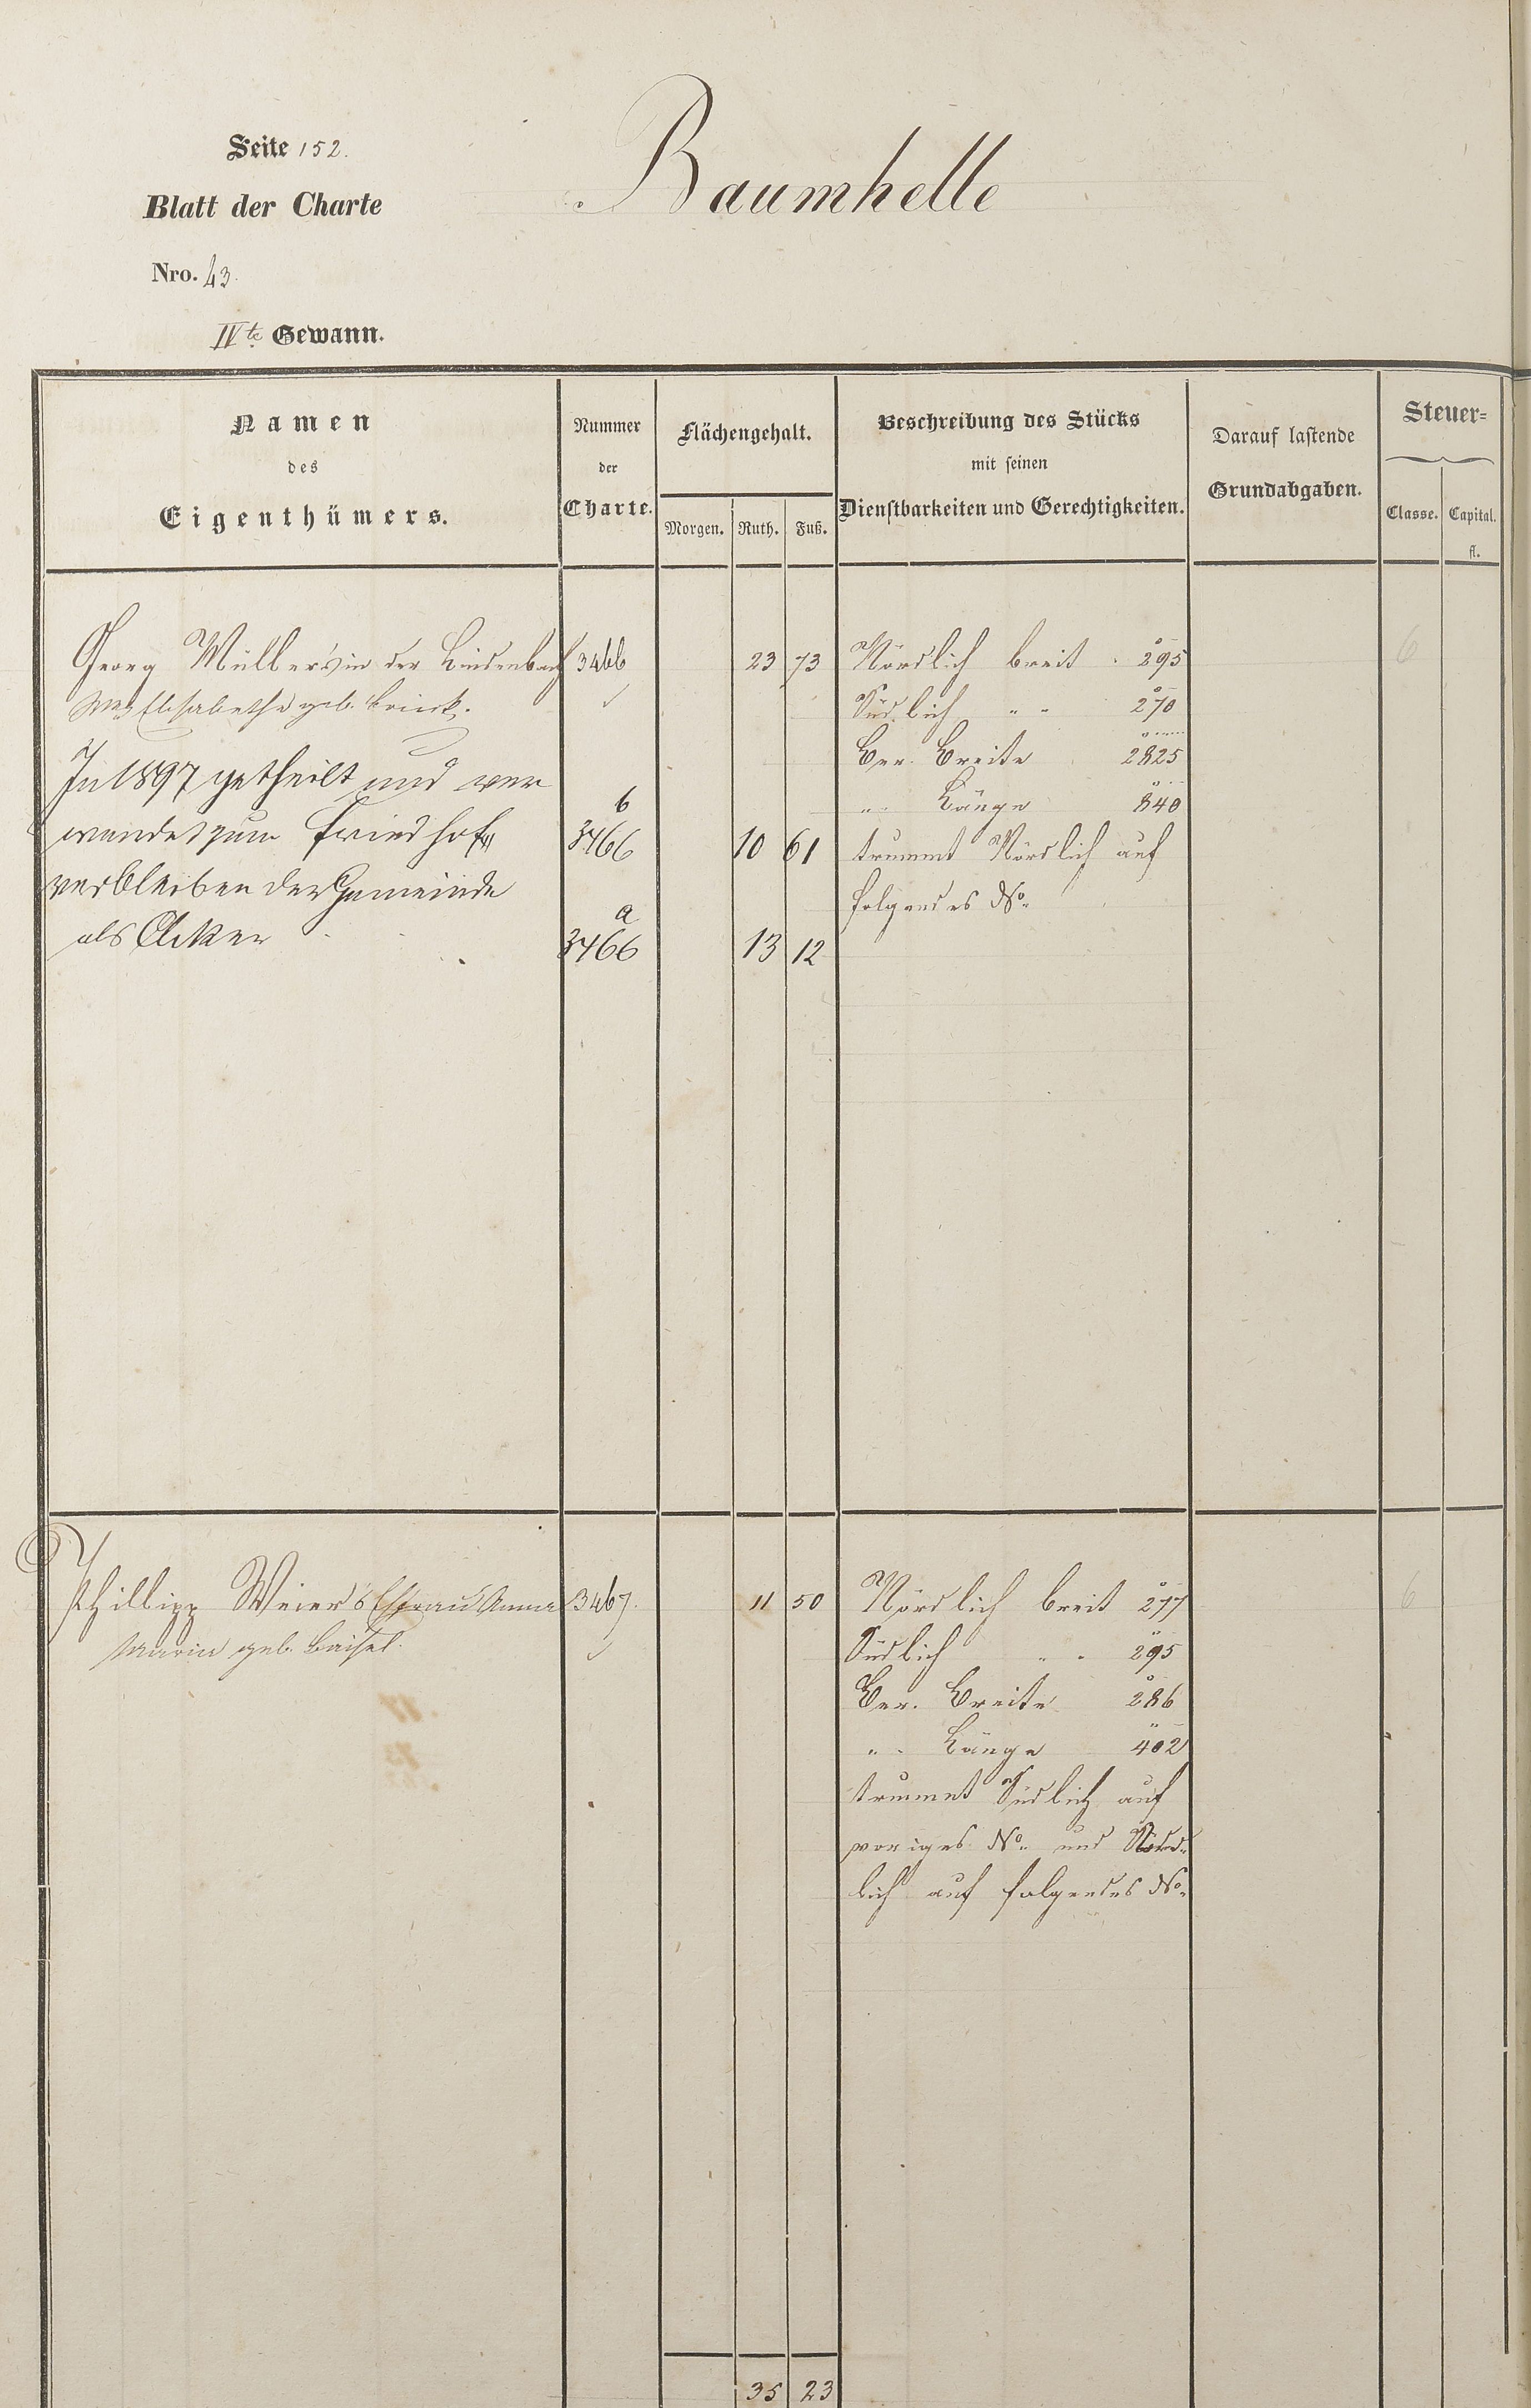 Seite 152.
Baumhelle
Blatt der Charte
Nro. 43.
IVte Gewann.
Namen des Eigenthümers.
Nummer der Charte.
Flächengehalt.
Morgen. Ruth. Fuß.
Beschreibung des Stücks
mit seinen
Dienstbarkeiten und Gerechtigkeiten.
Darauf lastende
Grundabgaben.
Steuer=
Classe. Capital.
fl.
Georg Müller's in der Lindenbach 3466 23 73 Nördlich breit . 295 6
Elisabetha geb. Südlich " " 270
Ber. Breite 2825
In 1897 getheilt und ver
" " Länge 840
b
wendet zum Friedhof 3466 10 61 trummt Nördlich auf
verbleiben der Gemeinde folgendes No.
a
als Acker 3466 13 12
Phillipp Weier's Ehfrau Anna 3467. 11 50 Nördlich breit 277 6
Maria geb. Südlich " " 295
Ber. Breite 286
" " Länge 402
trummt Südlich auf
voriges No. und Nörd=
lich auf folgendes No.
35 23